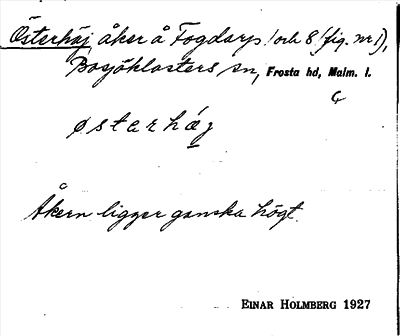 Österhäj, åker å Fogdarp 1 och 8 (fig. nr 1),
Bosjöklosters sn, Frosta hd, Malm. l.
østarhæj
Åkern ligger ganska högt.
EINAR HOLMBERG 1927